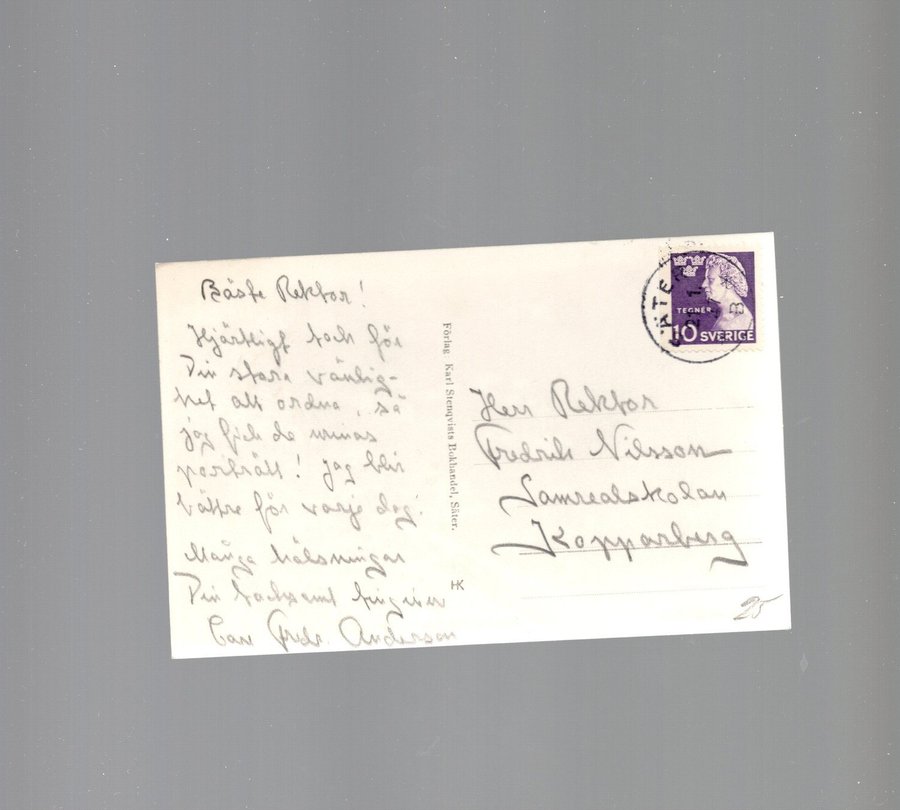 Bäste Rektor!
Hjärtligt tack för
Din stora vänlig-
het att ordna, så
jag fick de
porträtt! Jag blir
bättre för varje dag!
Många hälsningar
Din tacksamt tillgivne
Carl Fredr. Anderson
Förlag Karl Stenqvists Bokhandel, Säter.
HK
SÄTER
21 1
B
TEGNÉR
10 SVERIGE
Herr Rektor
Fredrik Nilsson
Samrealskolan
Kopparberg
25